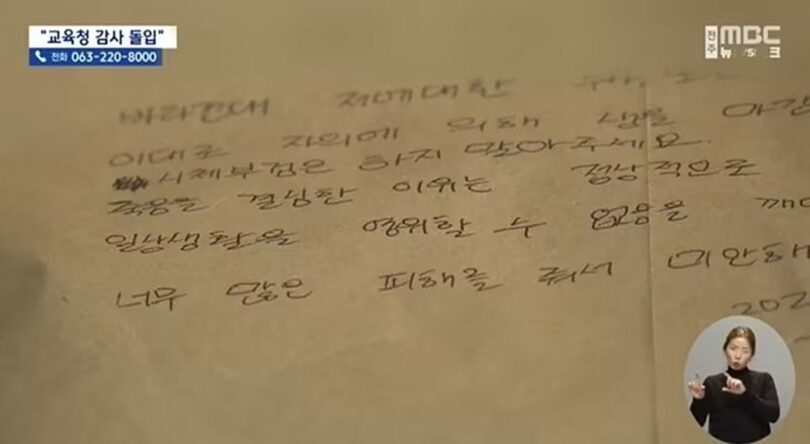 "교육청 감사 돌입"
전화 063-220-8000
전주 MBC
뉴스데스크
바라건대 저에대한
이대로 자의에 의해 삶을 마감
시체부검은 하지 말아주세요.
죽음을 결심한 이유는 정상적으로
일상생활을 영위할 수 없음을 깨
너무 많은 피해를 줘서 미안해
202